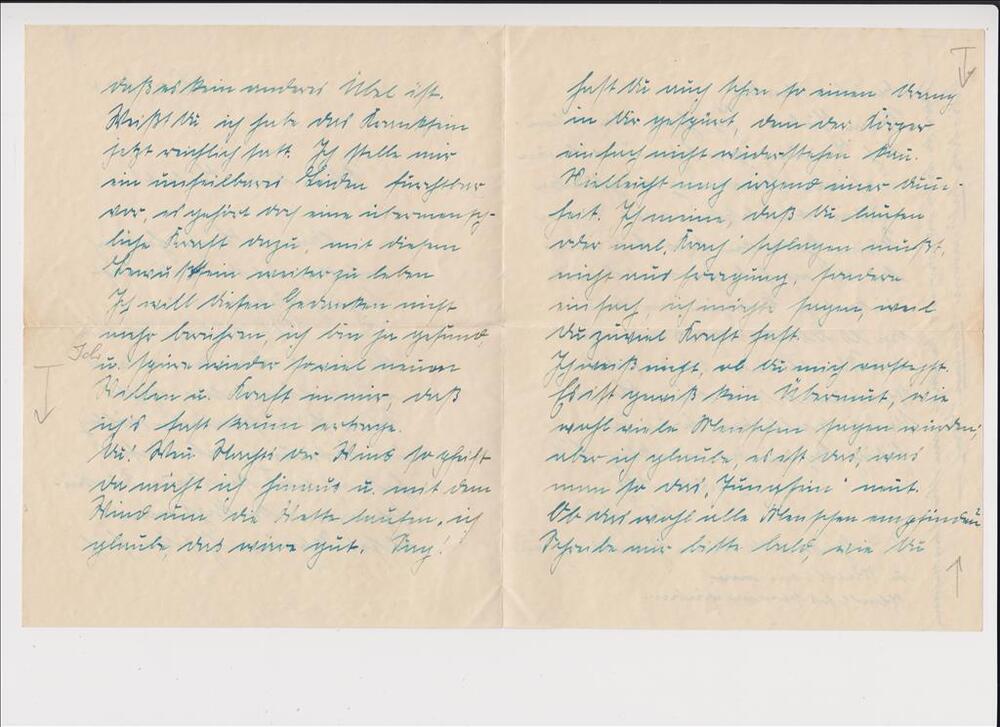 daß es kein anderes Übel ist.
Weißt Du ich habe das Kranksein
jetzt reichlich satt. Ich stelle mir
ein unheilbares Leiden furchtbar
vor, es gehört doch eine übermensch-
liche Kraft dazu, mit diesem
Bewußtsein weiter zu leben
Ich will diesen Gedanken nicht
mehr berühren, ich bin ja gesund,
Ich
u. spüre wieder soviel neuen
Willen u. Kraft in mir, daß
ich's fast kaum ertrage.
Du! Wen Nachts der Wind so pfeift
da möcht ich hinaus u. mit dem
Wind um die Wette laufen, ich
glaube, das wäre gut. Sag!
hast Du auch schon so einen Drang
in Dir gespürt, dem der Körper
einfach nicht widerstehen kan.
Vielleicht nach irgend einer Dum-
heit. Ich meine, daß Du laufen
oder mal „Krach" schlagen mußt,
nicht aus Erregung, sondern
einfach, ich möchte sagen, weil
Du zuviel Kraft hast.
Ich weiß nicht, ob Du mich verstehst.
Es ist gewiß kein Übermut, wie
wohl viele Menschen sagen würden,
aber ich glaube, es ist das, was
man so das „Jungsein" nent.
Ob das wohl alle Menschen empfinden?
Schreibe mir bitte bald, wie Du